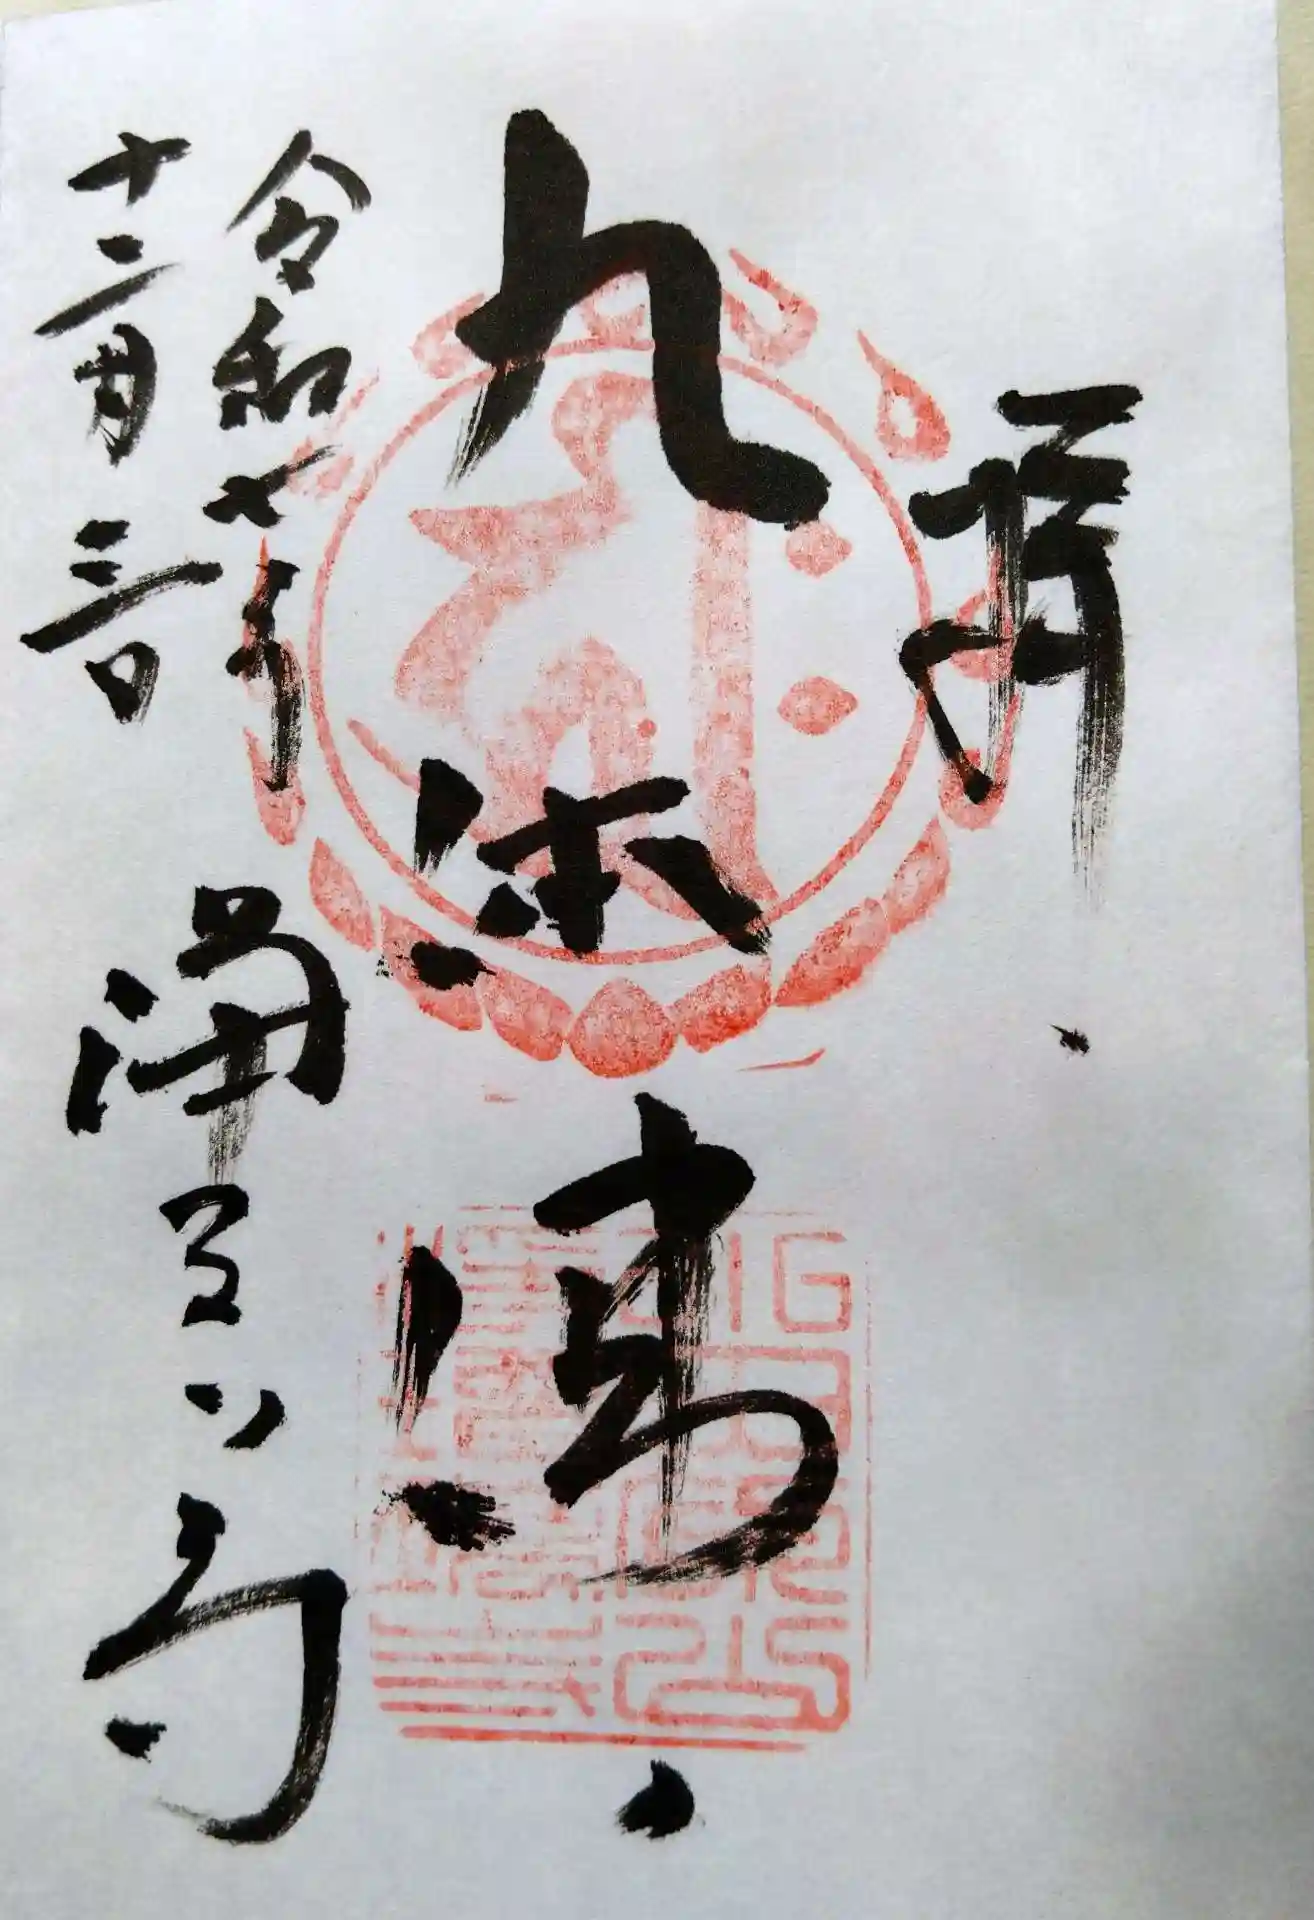 拝
九体佛
令和七年
十二月三日
浄るり寺